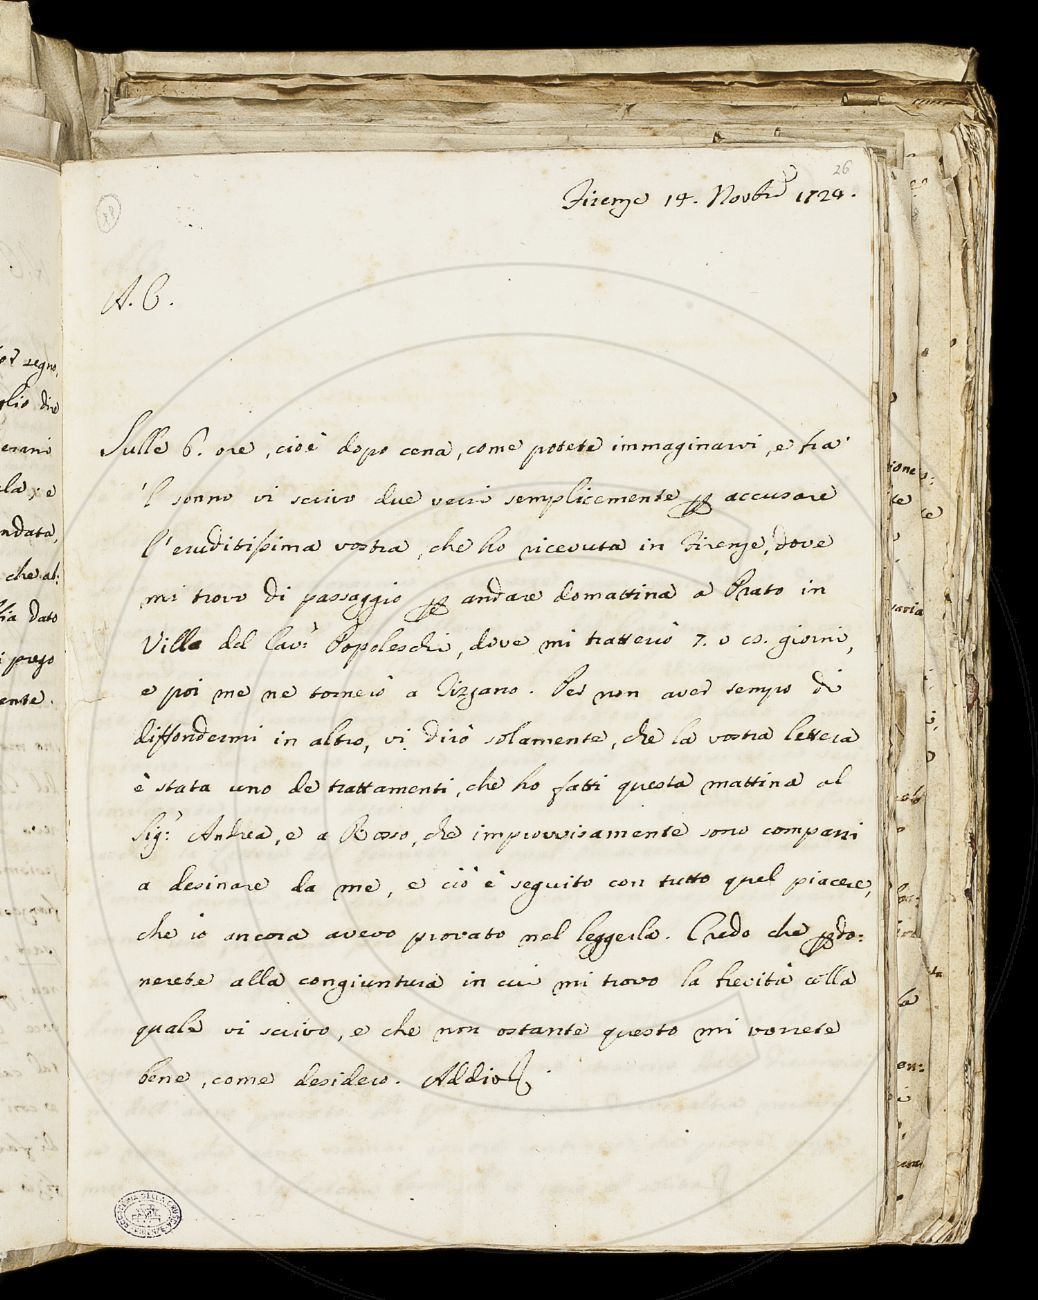 26
Firenze 14. Novbre 1724.
A. C.
Sulle 6. ore, cioè dopo cena, come potete immaginarvi, e tra
'l sonno vi scrivo due versi semplicemente p accusare
l'eruditissima vostra, che ho ricevuta in Firenze, dove
mi trovo di passaggio p andare domattina a Prato in
Villa del Cav:r Popoleschi, dove mi tratterrò 7. o co. giorni,
e poi me ne tornerò a Tizzano. Per non aver tempo di
diffondermi in altro, vi dirò solamente, che la vostra lettera
è stata uno de trattamenti, che ho fatti questa mattina al
Sig:r Andrea, e a Rosso, che improvvisamente sono comparsi
a desinare da me, e ciò è seguito con tutto quel piacere,
che io ancora avevo provato nel leggerla. Credo che pdo:
nerete alla congiuntura in cui mi trovo la brevità colla
quale vi scrivo, e che non ostante questo mi vorrete
bene, come desidero. Addio.
segno.
glio dir
erani
la, e
ndata,
che al:
ha dato
prego
ente.